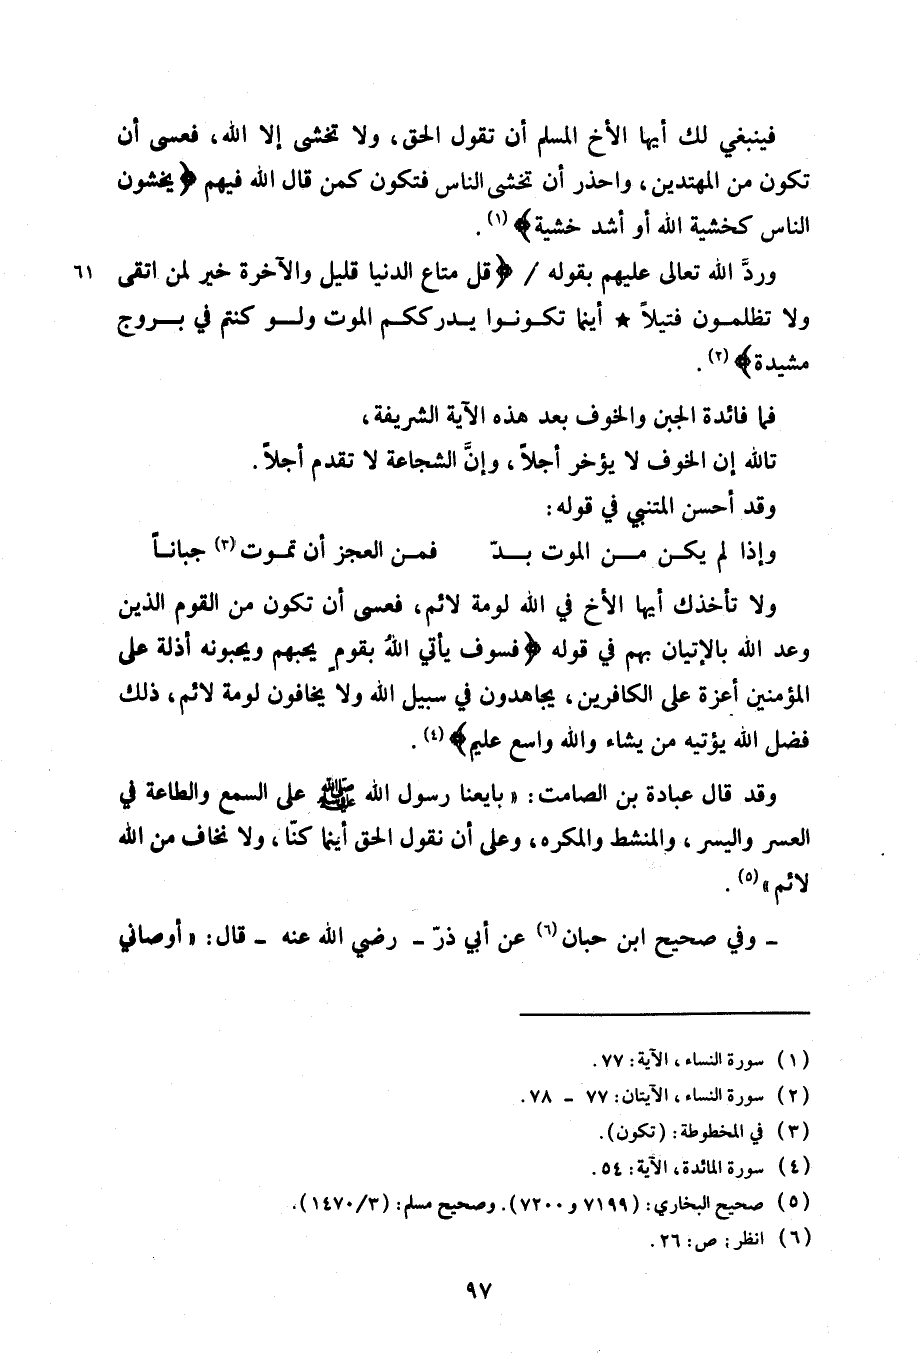 فينبغي لك أيها الأخ المسلم أن تقول الحق، ولا تخشى إلا الله، فعسى أن
تكون من المهتدين، واحذر أن تخشى الناس فتكون كمن قال الله فيهم ﴿يخشون
الناس كخشية الله أو أشد خشية﴾(١).
وردَّ الله تعالى عليهم بقوله / ﴿قل متاع الدنيا قليل والآخرة خير لمن اتقى ٦١
ولا تظلمون فتيلاً ★ أينما تكونوا يدرككم الموت ولو كنتم في بروج
مشيدة﴾(٢).
فما فائدة الجبن والخوف بعد هذه الآية الشريفة،
تالله إن الخوف لا يؤخر أجلاً، وإنَّ الشجاعة لا تقدم أجلاً.
وقد أحسن المتنبي في قوله:
وإذا لم يكن من الموت بدّ فمن العجز أن تموت(٣) جباناً
ولا تأخذك أيها الأخ في الله لومة لائم، فعسى أن تكون من القوم الذين
وعد الله بالإتيان بهم في قوله ﴿فسوف يأتي اللهُ بقومٍ يحبهم ويحبونه أذلة على
المؤمنين أعزة على الكافرين، يجاهدون في سبيل الله ولا يخافون لومة لائم، ذلك
فضل الله يؤتيه من يشاء والله واسع عليم﴾(٤).
وقد قال عبادة بن الصامت: «بايعنا رسول الله ﷺ على السمع والطاعة في
العسر واليسر، والمنشط والمكره، وعلى أن نقول الحق أينما كنّا، ولا نخاف من الله
لائم»(٥).
ـ وفي صحيح ابن حبان(٦) عن أبي ذرّ ـ رضي الله عنه ـ قال: «أوصاني
(١) سورة النساء، الآية: ٧٧.
(٢) سورة النساء، الآيتان: ٧٧ ـ ٧٨.
(٣) في المخطوطة: (تكون).
(٤) سورة المائدة، الآية: ٥٤.
(٥) صحيح البخاري: (٧١٩٩ و ٧٢٠٠). وصحيح مسلم: (١٤٧٠/٣).
(٦) انظر: ص: ٢٦.
٩٧